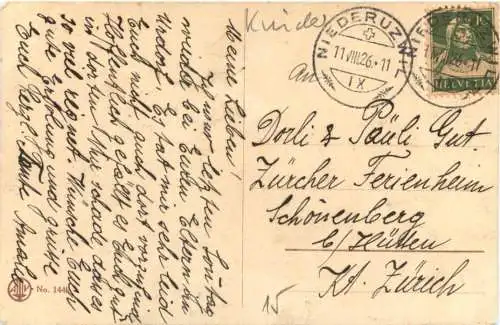 Meine Lieben!
Ich war letzten Sonntag
wieder bei Euren Eltern in
Urdorf. Es tat mir sehr leid
Euch nicht auch dort
Hoffentlich gefällt es Euch gut
in dorten. Nur schade dass es
so viel regnet. Wünsche Euch
gute Erholung und grüsse
Euch herzl. Tante Amalie
No. 144
Kinder
NIEDERUZWIL
11.VIII.26.-11
IX
NIEDERUZWIL
HELVETIA
An
Dorli & Päuli Gut.
Zürcher Ferienheim
Schönenberg
b/Hütten
Kt. Zürich
15